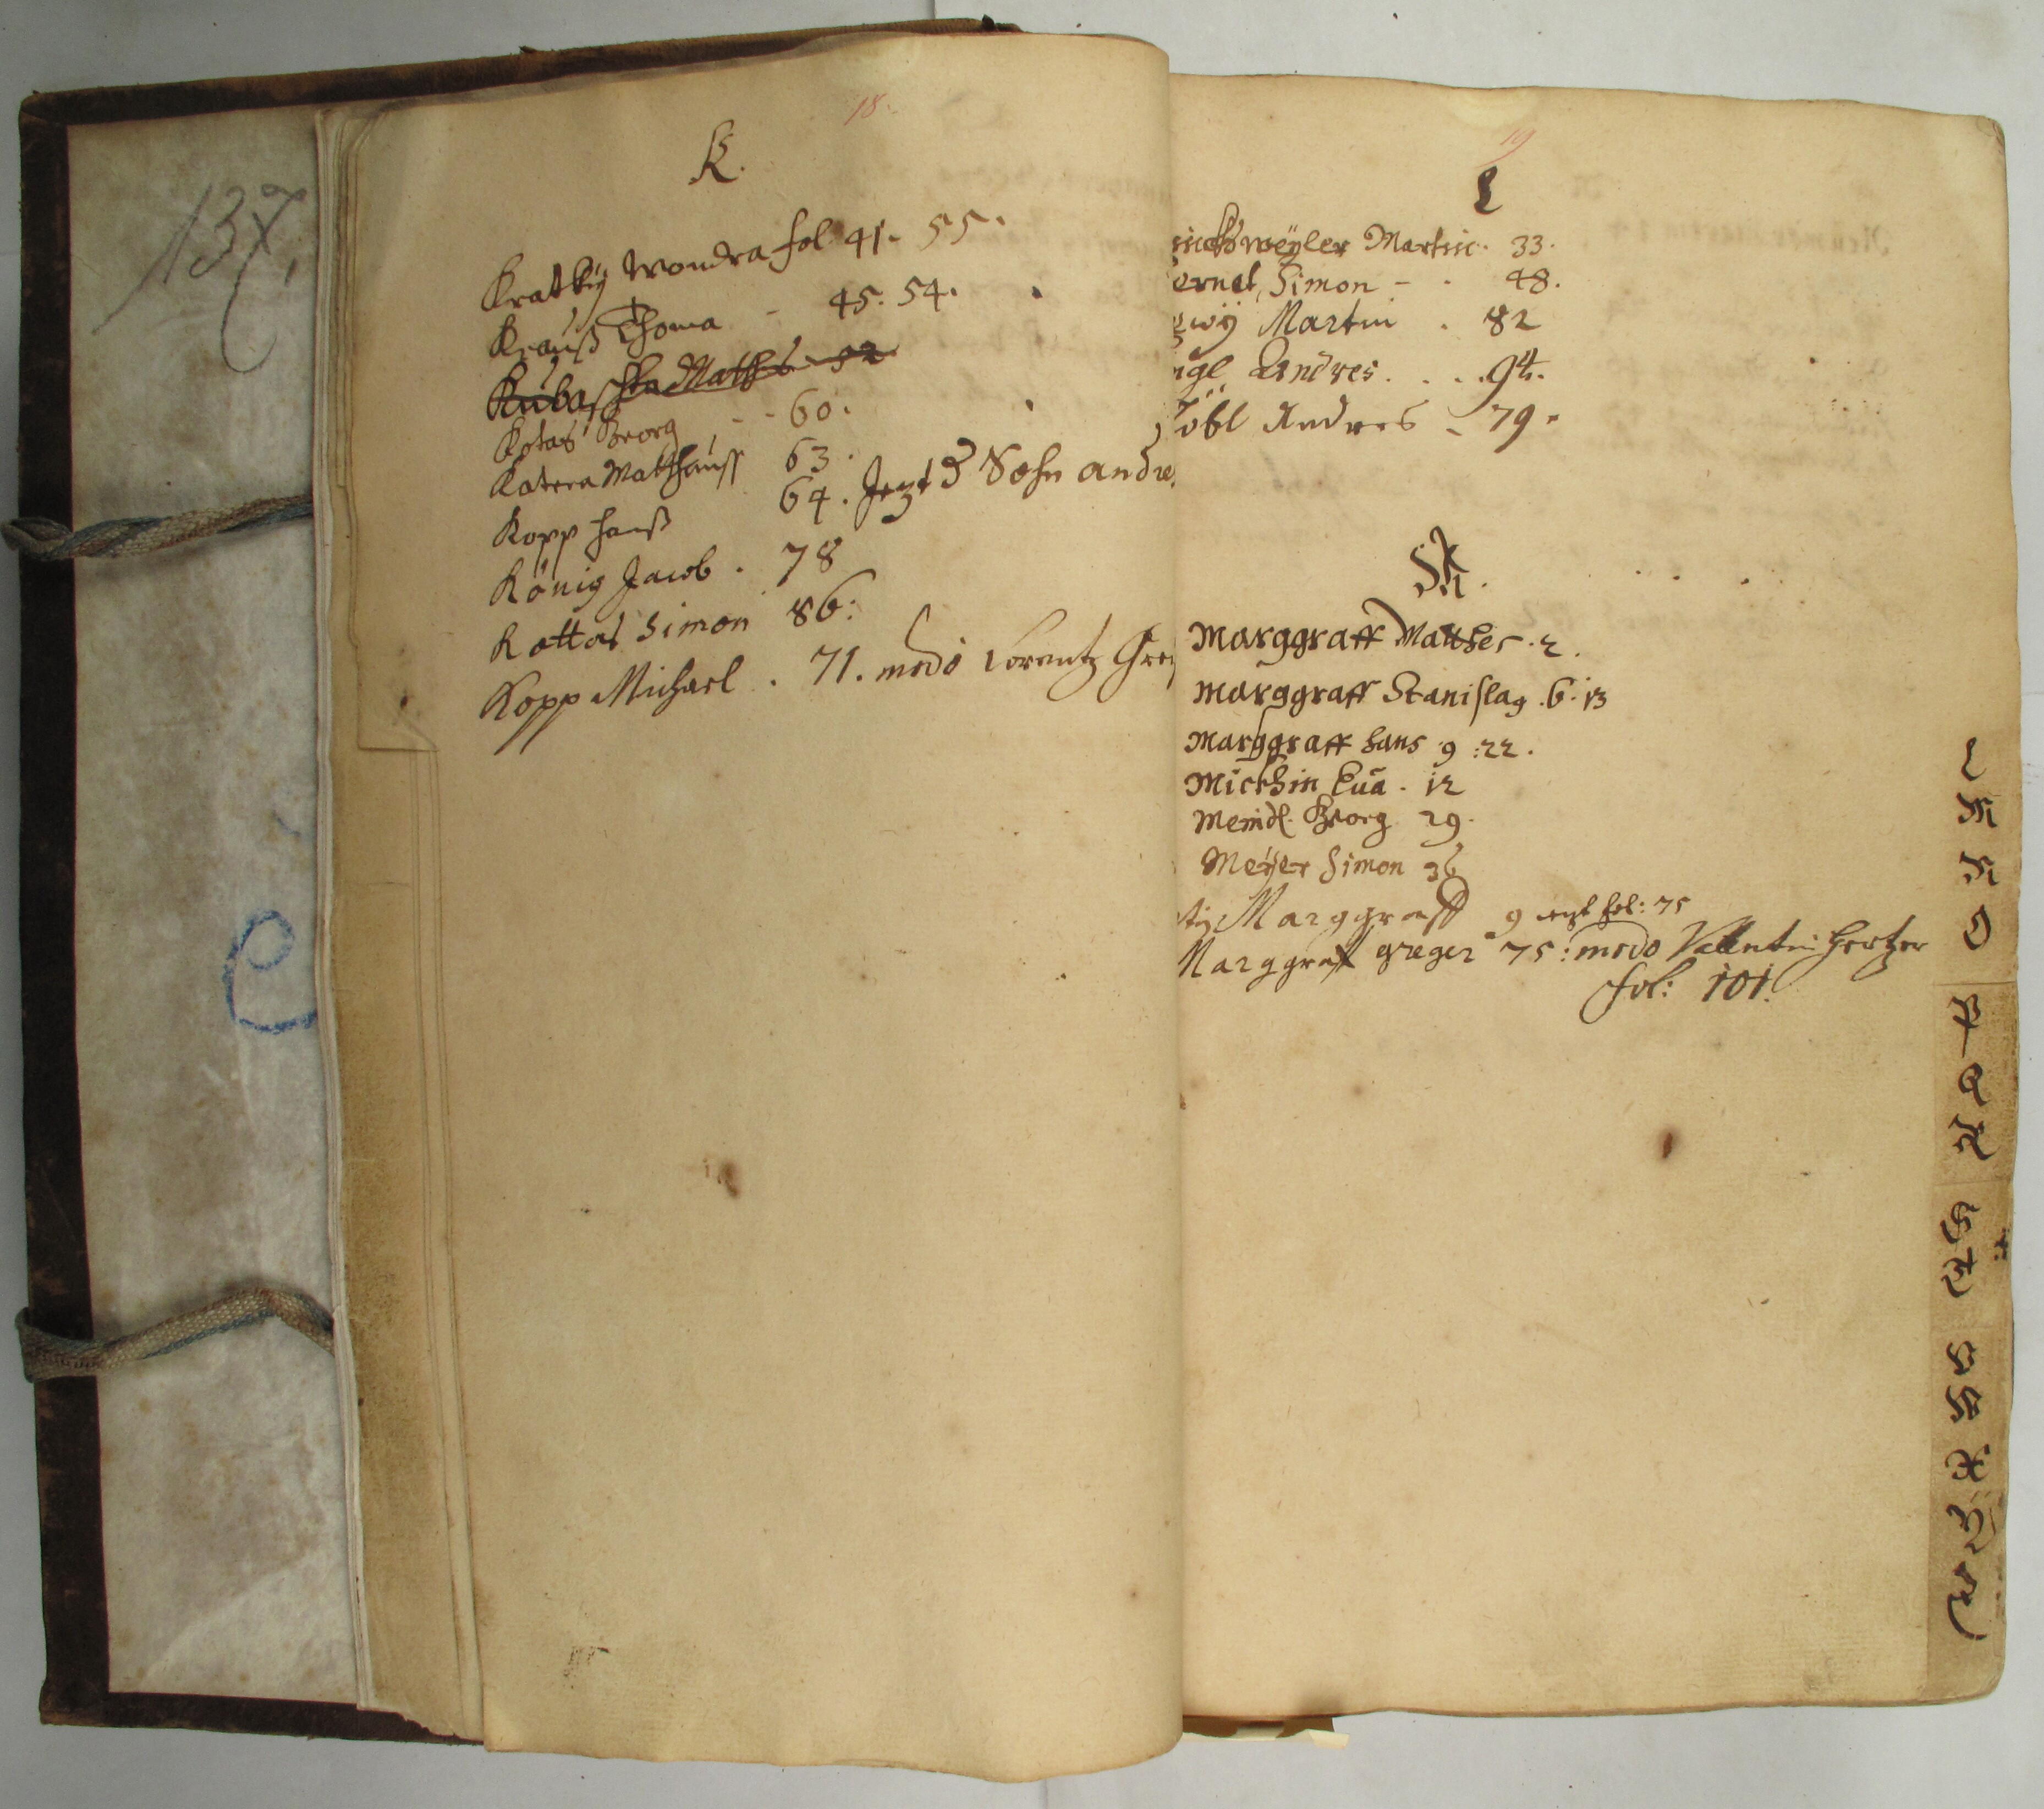 137
18.
K.
Kratkÿ Wondra fol. 41. 55.
Krauß Thoma - 45. 54.
Kubaschta Matthes 52
Kotas Georg - - 60.
Katera Matthauß 63.
Kopp Hanß 64. Jezt d Sohn Andre
König Jacob. 78
Kottas Simon 86:
Kopp Michael. 71. modo Lorentz Greg
19
L
weÿler Martin. 33.
Simon - . 48.
Martin . 82
Andres. . . .94.
Andres - 79.
M.
Marggraff Matthes .2.
Marggraff Stanislaq .6.13
Marggraff Hans 9 :22.
Mickhin Eua. 12
Meindl. Georg 29.
Meÿer Simon 36
Marggraff 9 jezt fol: 75
Marggraff greger 75: modo Vallentin Hertzer
fol: 101.
L
M
N
O
P
Q
R
S
T